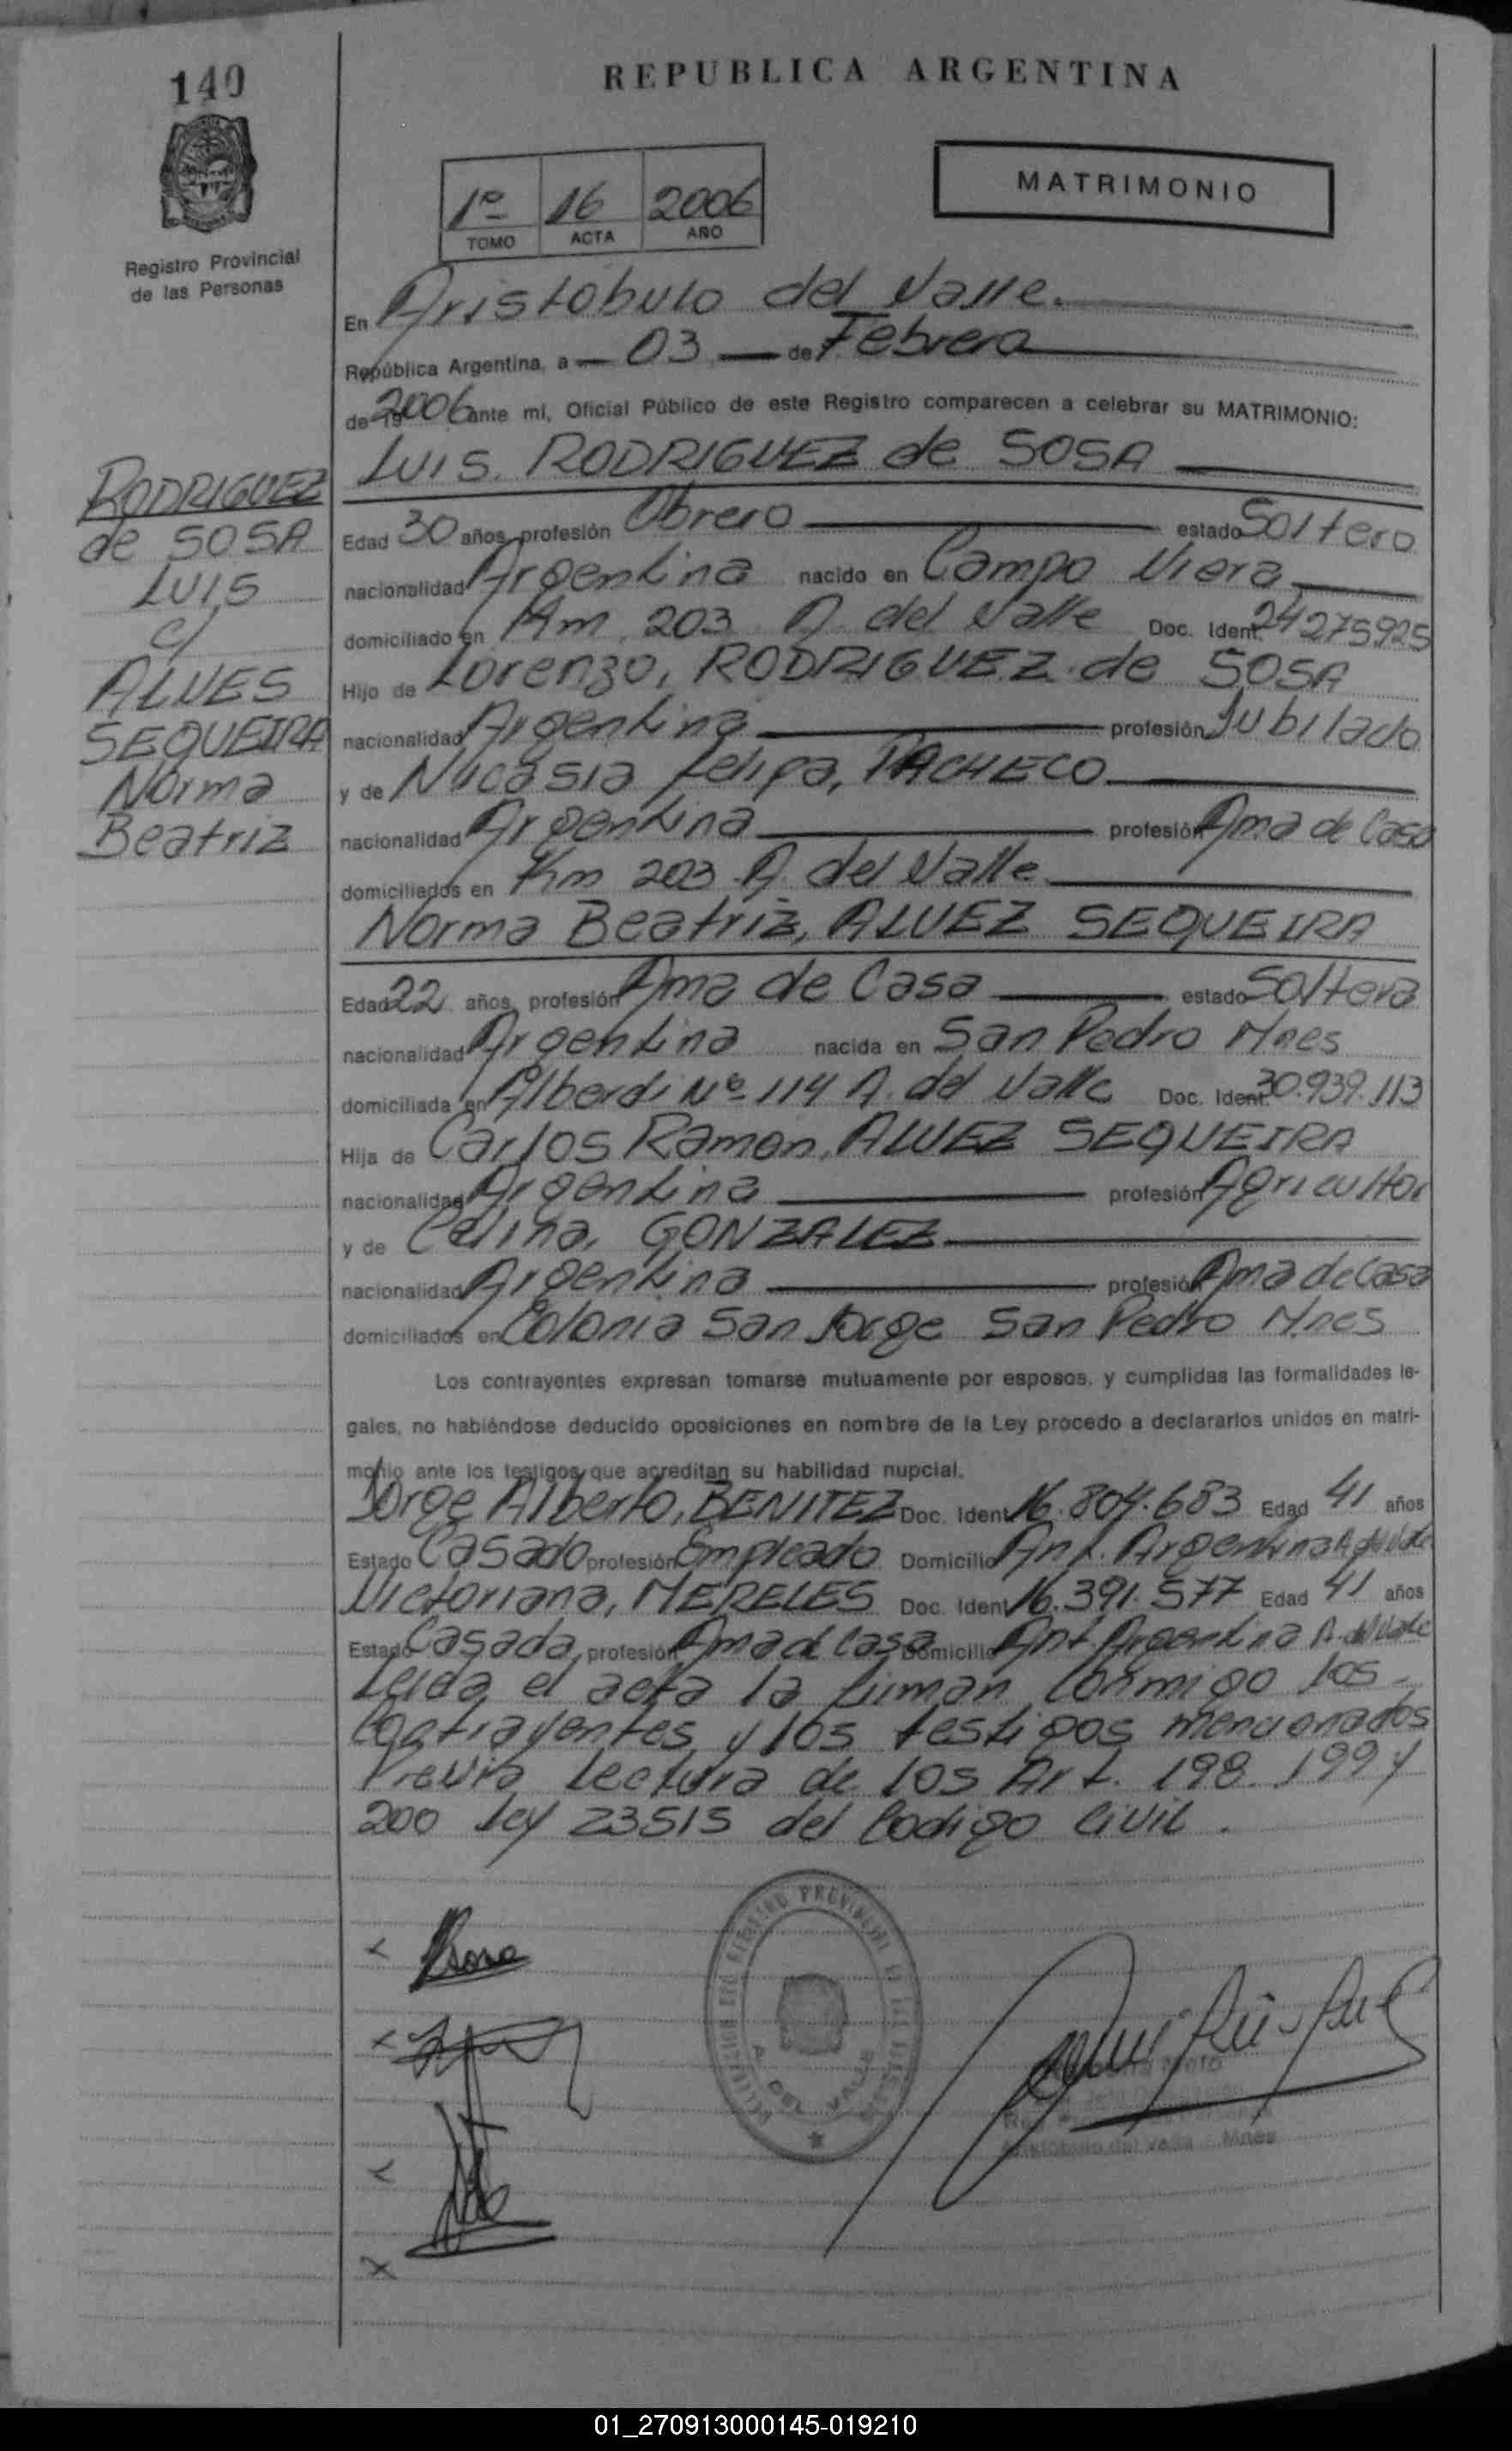 140
REPUBLICA ARGENTINA
1º 16 2006
TOMO ACTA AÑO
MATRIMONIO
Registro Provincial
de las Personas
En Aristobulo del Valle.
República Argentina, a 03 de Febrero
de 19 2006 ante mí, Oficial Público de este Registro comparecen a celebrar su MATRIMONIO:
Luis, RODRIGUEZ de SOSA
RODRIGUEZ
de SOSA
LUIS
c/
ALVES
SEQUEIRA
Norma
Beatriz
Edad 30 años, profesión Obrero estado Soltero
nacionalidad Argentina nacido en Campo Viera
domiciliado en Km 203 A. del Valle Doc. Ident. 24275925
Hijo de Lorenzo, RODRIGUEZ de SOSA
nacionalidad Argentina profesión Jubilado
y de Nucasia Felipa, PACHECO
nacionalidad Argentina profesión Ama de Casa
domiciliados en Km 203 A. del Valle
Norma Beatriz, ALVEZ SEQUEIRA
Edad 22 años, profesión Ama de Casa estado Soltera
nacionalidad Argentina nacida en San Pedro Mnes
domiciliada en Alberdi Nº 114 A. del Valle Doc. Ident. 30.939.113
Hija de Carlos Ramon, ALVEZ SEQUEIRA
nacionalidad Argentina profesión Agricultor
y de Celina, GONZALEZ
nacionalidad Argentina profesión Ama de Casa
domiciliados en Colonia San Jorge San Pedro Mnes
Los contrayentes expresan tomarse mutuamente por esposos, y cumplidas las formalidades le-
gales, no habiéndose deducido oposiciones en nombre de la Ley procedo a declararlos unidos en matri-
monio ante los testigos que acreditan su habilidad nupcial.
Jorge Alberto, BENITEZ Doc. Ident. 16.804.683 Edad 41 años
Estado Casado profesión Empleado Domicilio Ant. Argentina A. del Valle
Victoriana, MERELES Doc. Ident. 16.391.577 Edad 41 años
Estado Casada, profesión Ama de Casa Domicilio Ant. Argentina A. del Valle
Leida el acta la firman conmigo los
Contrayentes y los testigos mencionados
Previa lectura de los Art. 198. 199 y
200 Ley 23515 del Codigo Civil.
A. DEL VALLE
Aristóbulo del Valle - Mnes
01_270913000145-019210